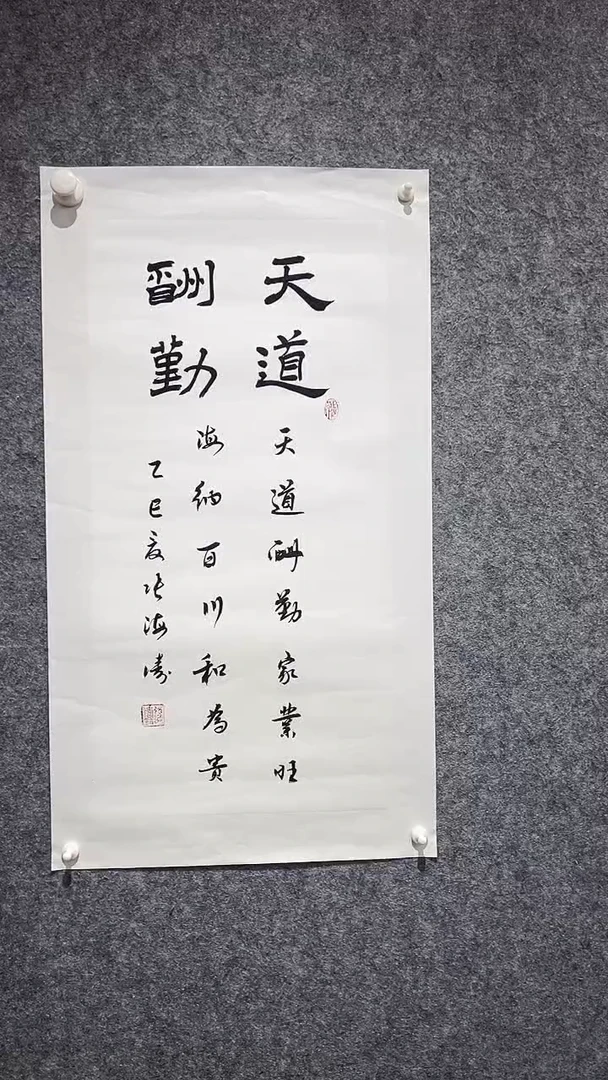 天道
酬勤
天道酬勤家業旺
海納百川和為貴
乙巳夏張海濤